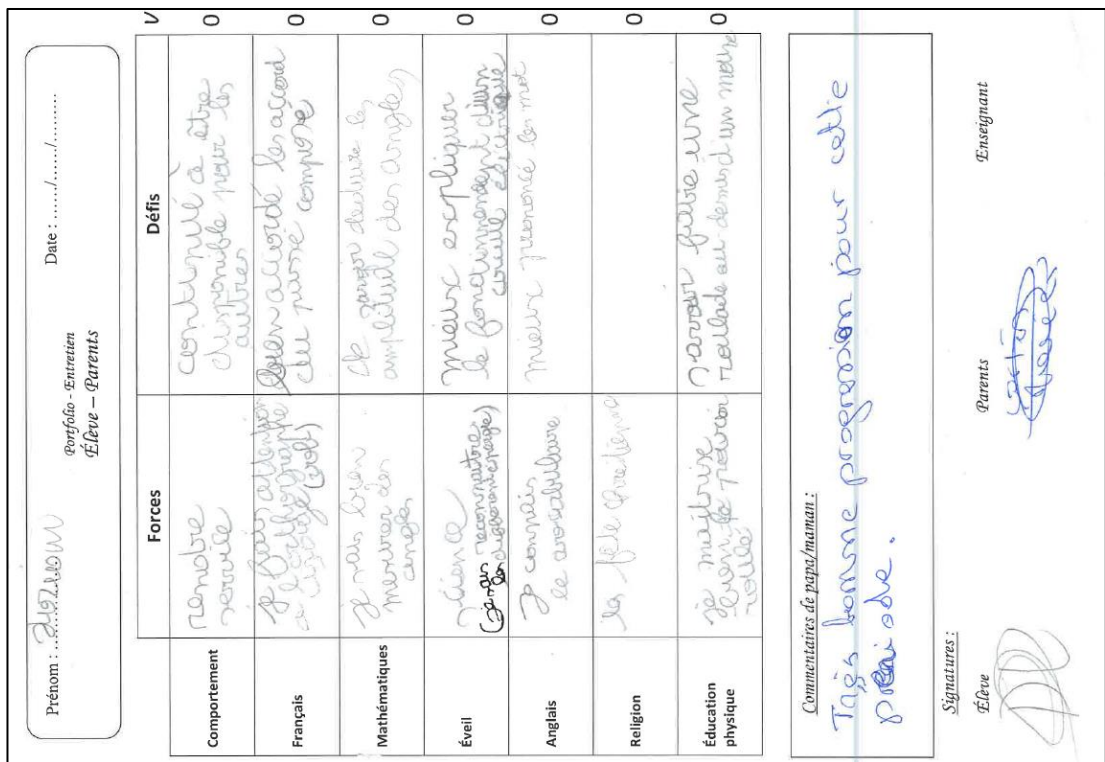 Prénom :
Date : ....../....../.........
Portfolio - Entretien
Élève – Parents
Forces
Défis
V
Comportement
rendre
service
continué à être
disponible pour les
autres
O
Français
je fais attention
a l'orthographe
bien accordé les accord
du passé composé
O
Mathématiques
je sais bien
mesurer des
angle
savoir
de deduire les
amplitude des angles
O
Éveil
(je sais reconnaitre
les energie)
mieux expliquer
le fonctionnement d'un
O
Anglais
je connais
le vocabulaire
mieux prononcé les mot
O
Religion
les fête chretienne
O
Éducation
physique
je
bien
savoir faire une
roulade au dessus d'un
O
Commentaires de papa/maman :
Très bonne progression pour cette
période.
Signatures :
Élève
Parents
Enseignant